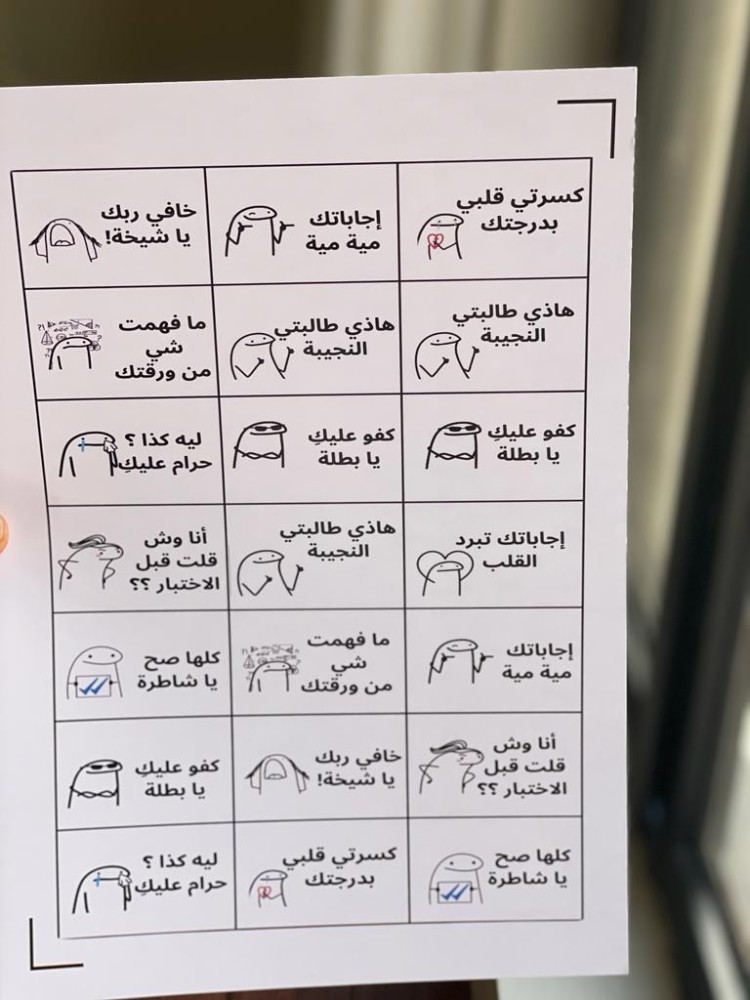 كسرتي قلبي
بدرجتك
إجاباتك
مية مية
خافي ربك
يا شيخة!
هاذي طالبتي
النجيبة
هاذي طالبتي
النجيبة
ما فهمت
شي
من ورقتك
كفو عليكِ
يا بطلة
كفو عليكِ
يا بطلة
ليه كذا ؟
حرام عليكِ
إجاباتك تبرد
القلب
هاذي طالبتي
النجيبة
أنا وش
قلت قبل
الاختبار ؟؟
إجاباتك
مية مية
ما فهمت
شي
من ورقتك
كلها صح
يا شاطرة
أنا وش
قلت قبل
الاختبار ؟؟
خافي ربك
يا شيخة!
كفو عليكِ
يا بطلة
كلها صح
يا شاطرة
كسرتي قلبي
بدرجتك
ليه كذا ؟
حرام عليكِ